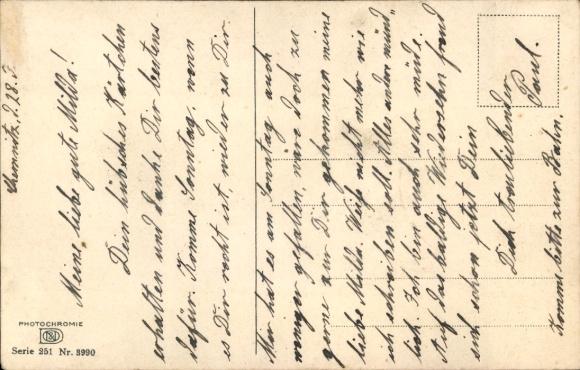 Chemnitz, 9.28.
Meine, liebe gute Milda!
Dein hübsches Kärtchen
erhalten und danke Dir bestens
dafür. Komme Sonntag, wenn
es Dir recht ist, wieder zu Dir.
Mir hat es am Sonntag auch
weniger gefallen, wäre doch zu
gerne zu Dir gekommen meine
liebe Milda. Weiß nicht mehr wie
ich schreiben soll. Alles andere münd„
lich. Ich bin auch sehr müde.
Auf das baldige Wiedersehn freud
sich schon jetzt Dein
Dich treuliebender
Paul.
Komme bitte zur Bahn.
PHOTOCHROMIE
Serie 251 Nr. 3990